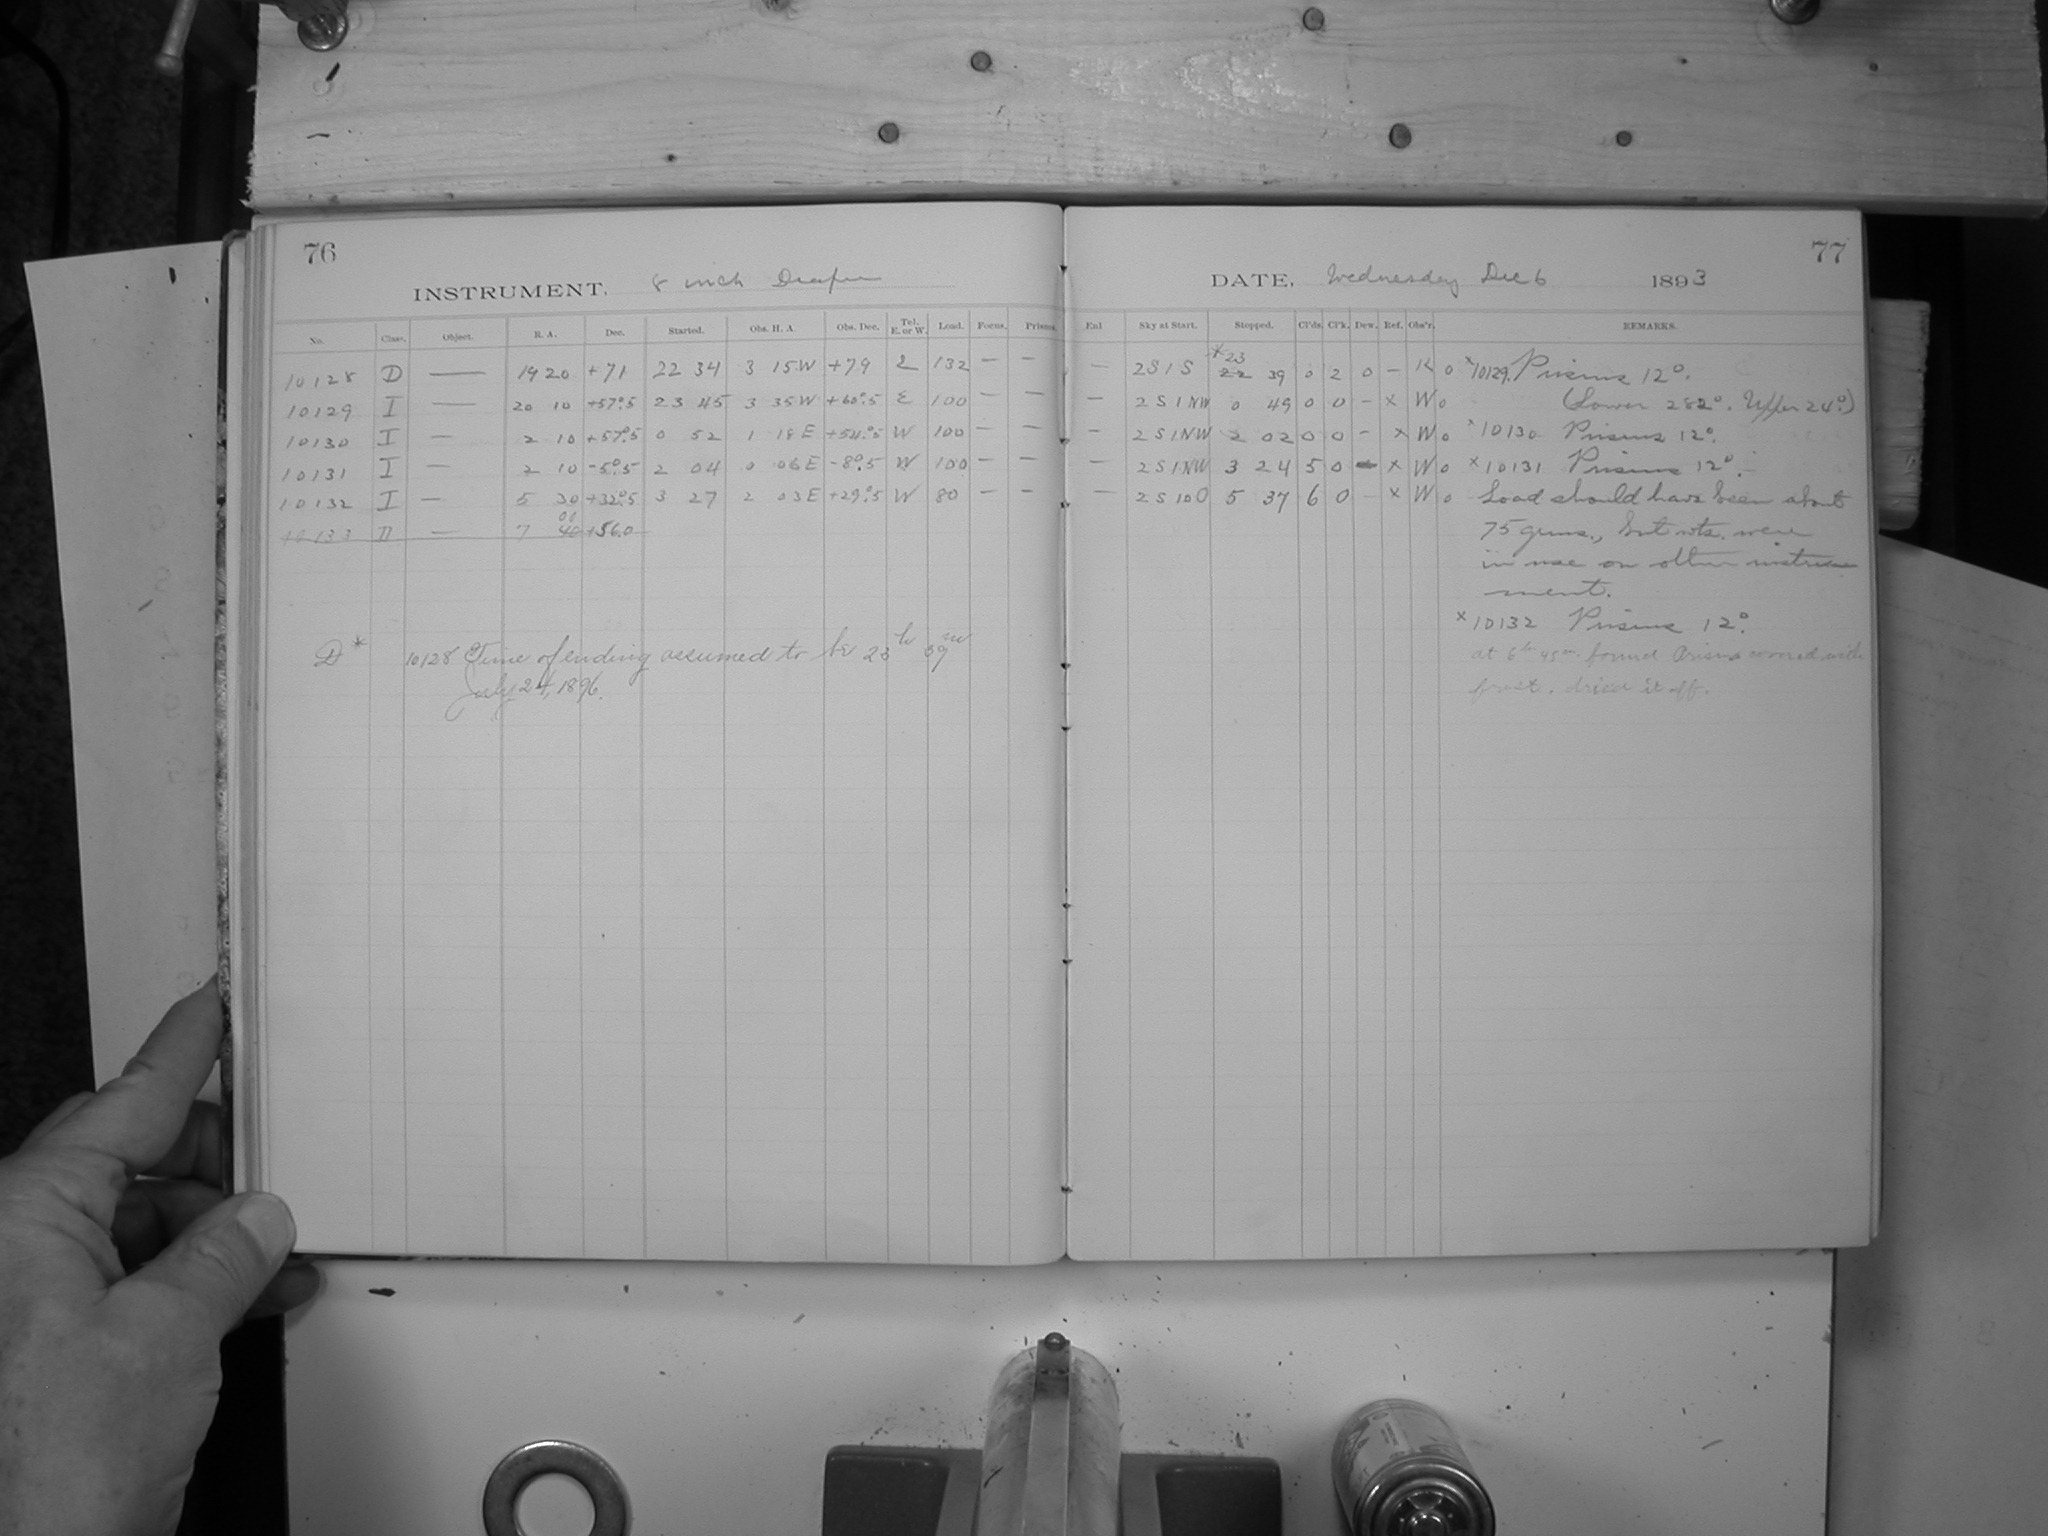 76
INSTRUMENT. 8 inch Draper
No. Class. Object. R. A. Dec. Started. Obs. H. A. Obs. Dec. Tel. E. or W. Load. Focus. Prisms
10128 D — 19 20 +71 22 34 3 15 W +79 E 132 — —
10129 I — 20 10 +57°.5 23 45 3 35 W +60°.5 E 100 — —
10130 I — 2 10 +57°.5 0 52 1 18 E +54°.5 W 100 — —
10131 I — 2 10 -5°.5 2 04 0 06 E -8°.5 W 100 — —
10132 I — 5 30 +32°.5 3 27 2 03 E +29°.5 W 80 — —
10133 D — 7 00 40 +56.0
D* 10128 Time of ending assumed to be 23h 39m
July 24, 1896.
77
DATE, Wednesday Dec 6 1893
Enl Sky at Start. Stopped. Cl'ds. Cl'k. Dew. Ref. Obs'r. REMARKS.
*23
— 2 S 1 S 22 39 0 2 0 — K 0 x10129. Prisms 12°.
— 2 S 1 NW 0 49 0 0 - x W 0 (Lower 282°. Upper 24°.)
— 2 S 1 NW 2 02 0 0 - x W 0 x10130 Prisms 12°.
— 2 S 1 NW 3 24 5 0 - x W 0 x10131 Prisms 12°.
— 2 S 10 0 5 37 6 0 - x W 0 Load should have been about
75 grms., but wts. were
in use on other instru
ment.
x10132 Prisms 12°.
at 6h 45m. found Prisms covered with
frost. dried it off.